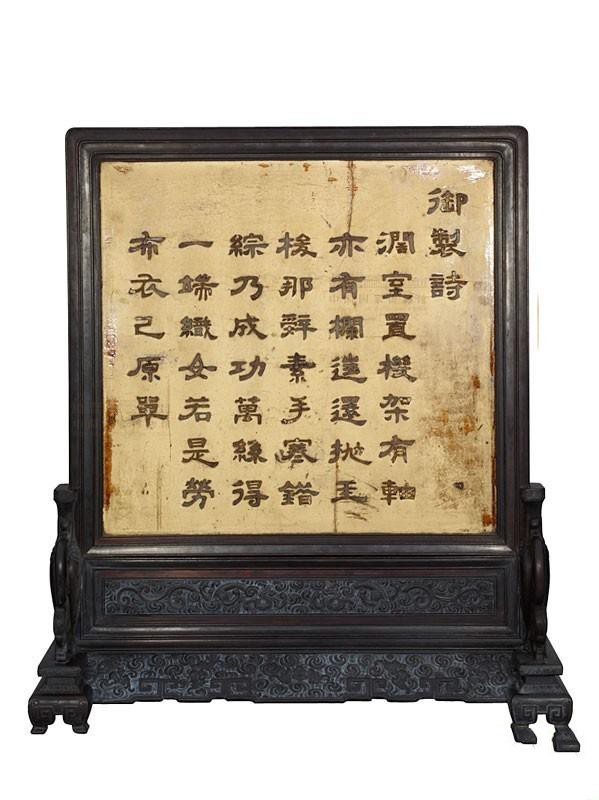 御製詩
潤室置機架有軸
亦有欄往還拋玉
梭那辭素手寒錯
綜乃成功萬絲得
一端織女若是勞
布衣已原單